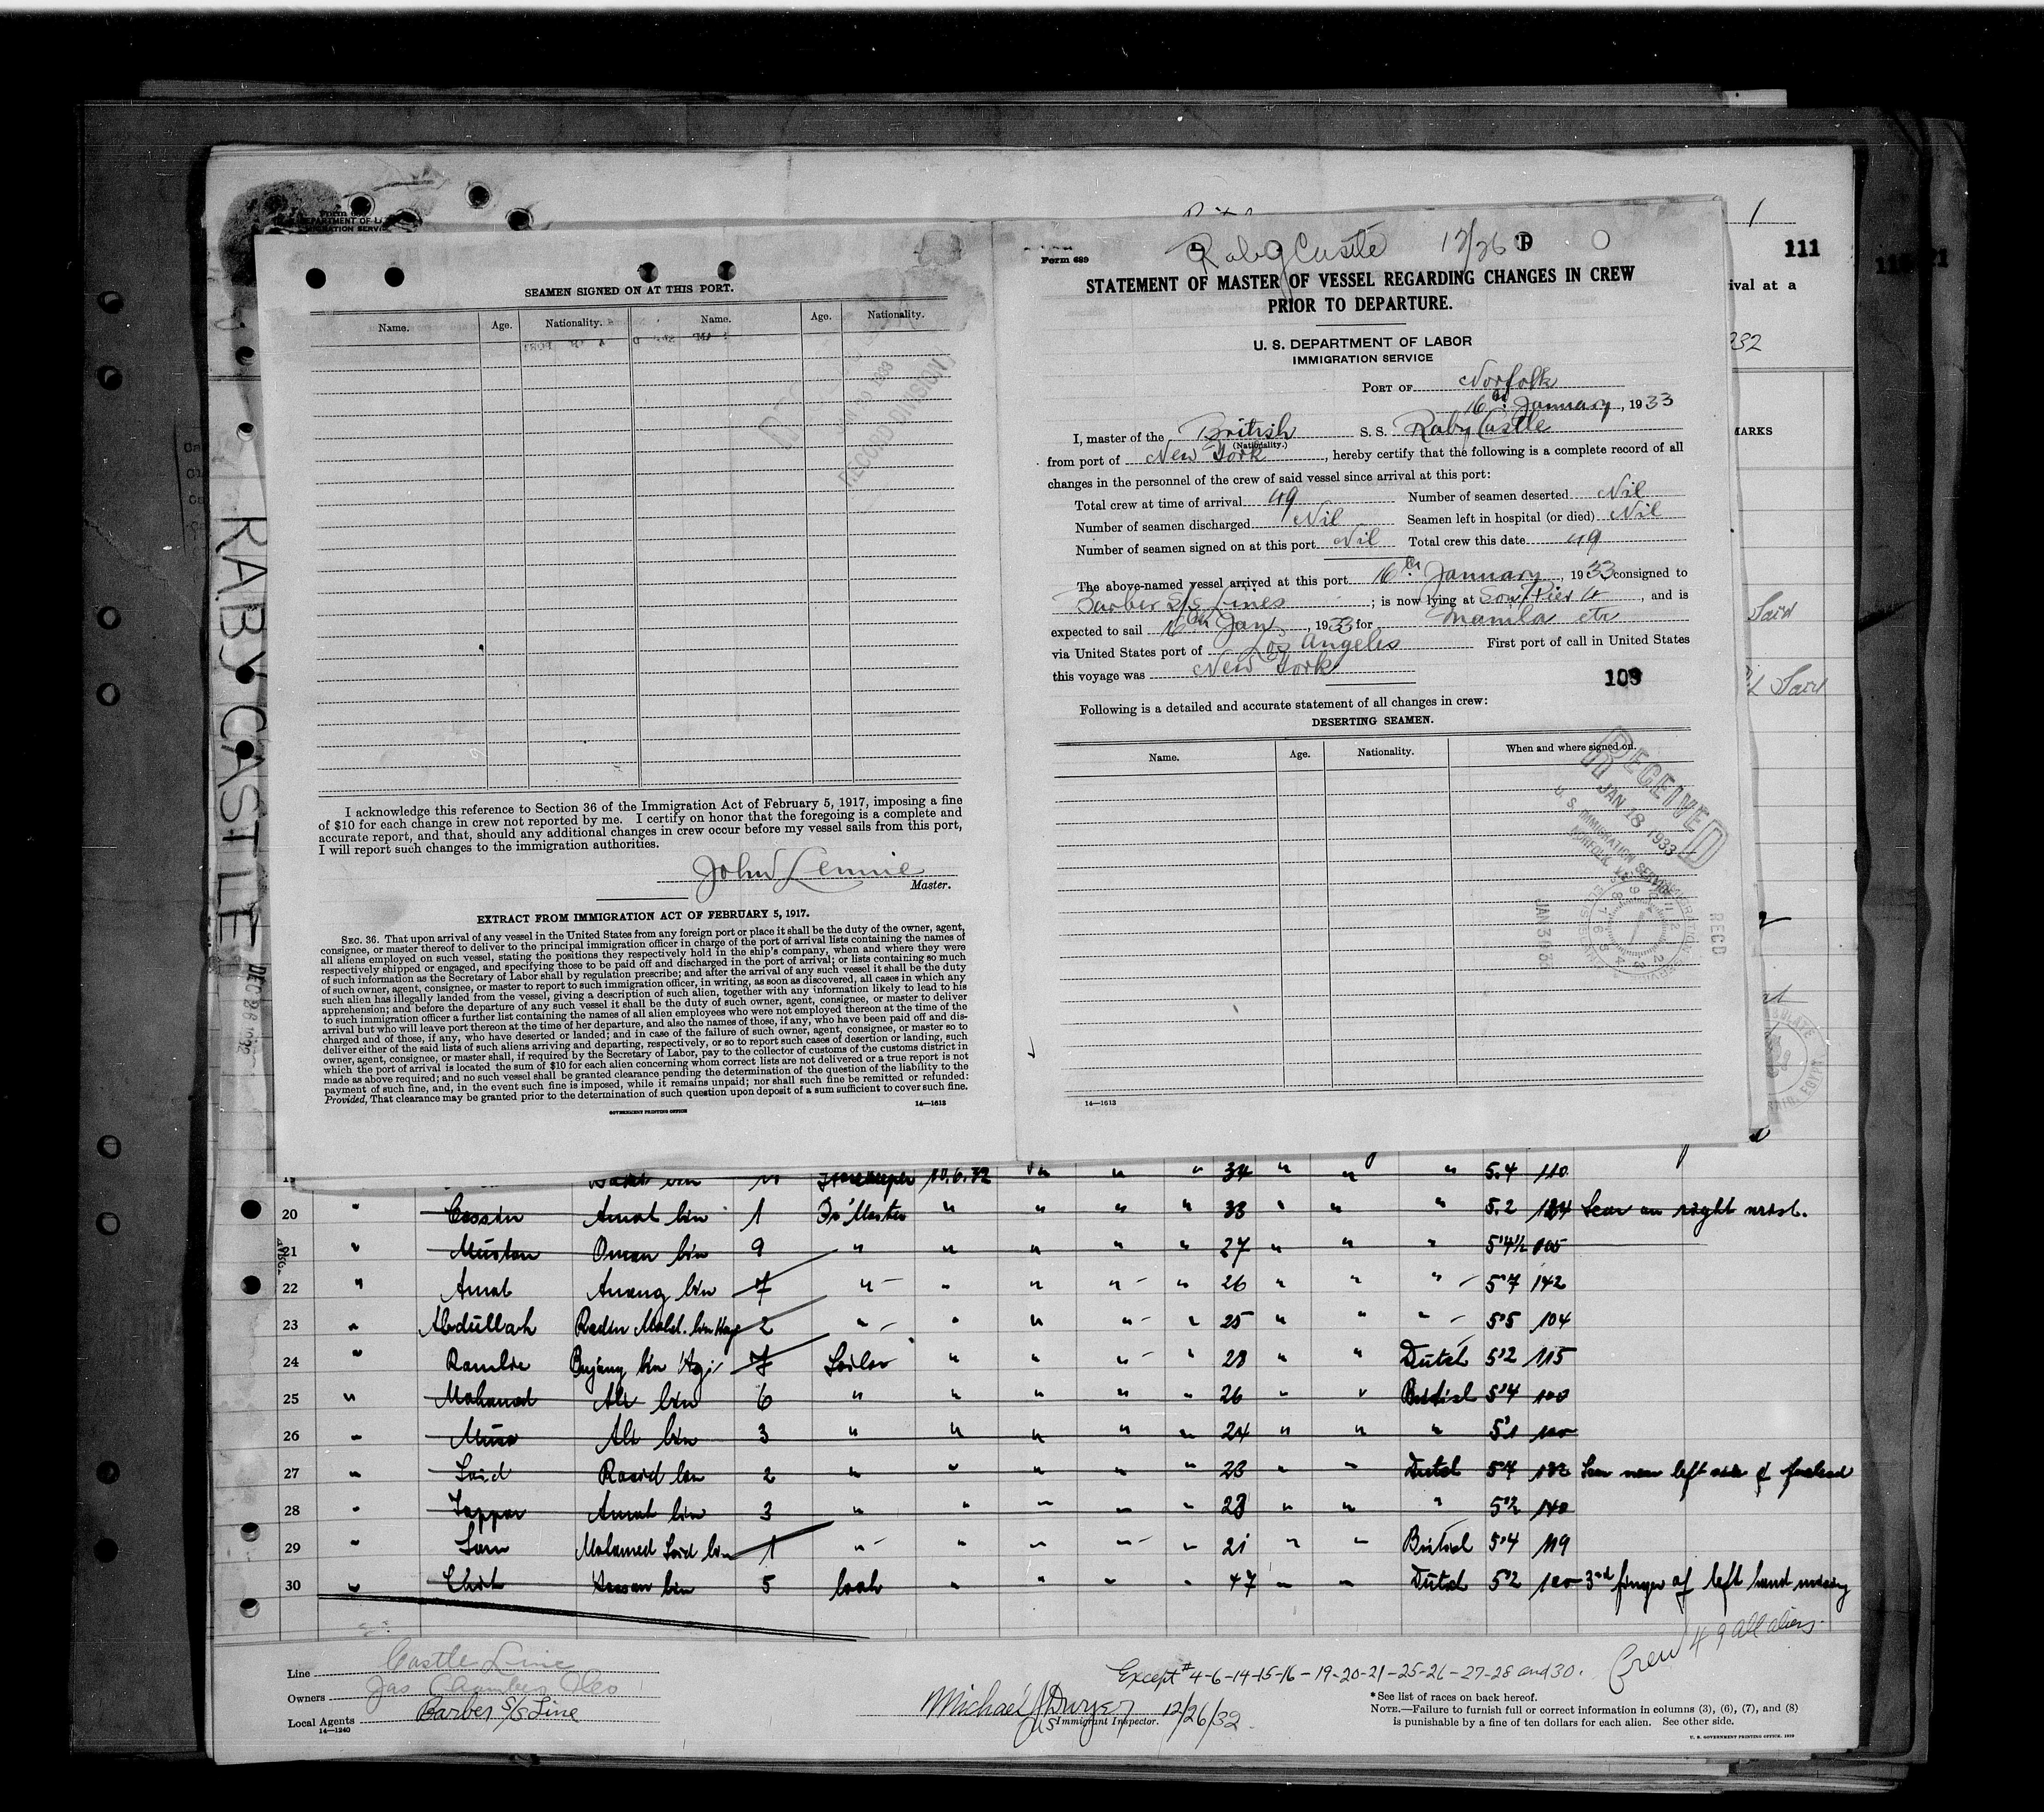 111
RABY CASTLE
DEC 26 1932
SEAMEN SIGNED ON AT THIS PORT.
Name. Age. Nationality. Name. Age. Nationality.
RECORD DIVISION
I acknowledge this reference to Section 36 of the Immigration Act of February 5, 1917, imposing a fine
of $10 for each change in crew not reported by me. I certify on honor that the foregoing is a complete and
accurate report, and that, should any additional changes in crew occur before my vessel sails from this port,
I will report such changes to the immigration authorities.
John Lennie
Master.
EXTRACT FROM IMMIGRATION ACT OF FEBRUARY 5, 1917.
SEC. 36. That upon arrival of any vessel in the United States from any foreign port or place it shall be the duty of the owner, agent,
consignee, or master thereof to deliver to the principal immigration officer in charge of the port of arrival lists containing the names of
all aliens employed on such vessel, stating the positions they respectively hold in the ship's company, when and where they were
respectively shipped or engaged, and specifying those to be paid off and discharged in the port of arrival; or lists containing so much
of such information as the Secretary of Labor shall by regulation prescribe; and after the arrival of any such vessel it shall be the duty
of such owner, agent, consignee, or master to report to such immigration officer, in writing, as soon as discovered, all cases in which any
such alien has illegally landed from the vessel, giving a description of such alien, together with any information likely to lead to his
apprehension; and before the departure of any such vessel it shall be the duty of such owner, agent, consignee, or master to deliver
to such immigration officer a further list containing the names of all alien employees who were not employed thereon at the time of the
arrival but who will leave port thereon at the time of her departure, and also the names of those, if any, who have been paid off and dis-
charged and of those, if any, who have deserted or landed; and in case of the failure of such owner, agent, consignee, or master so to
deliver either of the said lists of such aliens arriving and departing, respectively, or so to report such cases of desertion or landing, such
owner, agent, consignee, or master shall, if required by the Secretary of Labor, pay to the collector of customs of the customs district in
which the port of arrival is located the sum of $10 for each alien concerning whom correct lists are not delivered or a true report is not
made as above required; and no such vessel shall be granted clearance pending the determination of the question of the liability to the
payment of such fine, and, in the event such fine is imposed, while it remains unpaid; nor shall such fine be remitted or refunded:
Provided, That clearance may be granted prior to the determination of such question upon deposit of a sum sufficient to cover such fine.
GOVERNMENT PRINTING OFFICE 14—1613
Raby Castle 12/26
Form 689
STATEMENT OF MASTER OF VESSEL REGARDING CHANGES IN CREW
PRIOR TO DEPARTURE.
U. S. DEPARTMENT OF LABOR
IMMIGRATION SERVICE
PORT OF Norfolk
16th January, 1933
I, master of the British S. S. Raby Castle
(Nationality.)
from port of New York, hereby certify that the following is a complete record of all
changes in the personnel of the crew of said vessel since arrival at this port:
Total crew at time of arrival 49 Number of seamen deserted Nil
Number of seamen discharged Nil Seamen left in hospital (or died) Nil
Number of seamen signed on at this port Nil Total crew this date 49
The above-named vessel arrived at this port 16th January, 1933 consigned to
Barber S/S Lines; is now lying at Sou. Pier 4, and is
expected to sail 16th Jan, 1933 for Manila etc
via United States port of Los Angeles First port of call in United States
this voyage was New York
109
Following is a detailed and accurate statement of all changes in crew:
DESERTING SEAMEN.
Name. Age. Nationality. When and where signed on.
RECEIVED
JAN 18 1933
U. S. IMMIGRATION SERVICE
NORFOLK VA
RECD
14—1613
ival at a
MARKS
Said
Said
bin Storekeeper 10.6.32 " " " 34 " " " 5.4 110
20 " Cassim Amat bin 1 " " " " 33 " " " 5.2 Scar on right wrist.
21 " Mustan Oman bin 9 " " " " " 27 " " " 5'4½ 105
22 " Amat Awang bin 7 " " " " " 26 " " " 5'7 142
23 " Abdullah Raden Mohd. bin Haji 2 " " " " " 25 " " " 5'5 104
24 " Ramlie Bujang bin Agi 7 Sailor " " " " 28 " " Dutch 5'2 115
25 " Mohamad Ali bin 6 " " " " " 26 " " British 5'4 100
26 " Musa Ali bin 3 " " " " " 24 " " " 5'1 100
27 " Said Rasid bin 2 " " " " " 23 " " Dutch 5'4 132 Scar near left side of forehead
28 " Jappar Amat bin 3 " " " " " 28 " " " 5'2 140
29 " Sam Mohamed Said bin 1 " " " " " 21 " " British 5'4 119
30 " Chik Hassan bin 5 Cook " " " " 47 " " Dutch 5'2 100 3rd finger of left hand missing
Crew 49 all aliens
Line Castle Line
Owners Jas Chambers & Co
Local Agents Barber S/S Line
14—1240
Except #4-6-14-15-16-19-20-21-25-26-27-28 and 30.
Michael J Dwyer 12/26/32
US Immigrant Inspector.
* See list of races on back hereof.
NOTE.—Failure to furnish full or correct information in columns (3), (6), (7), and (8)
is punishable by a fine of ten dollars for each alien. See other side.
U. S. GOVERNMENT PRINTING OFFICE